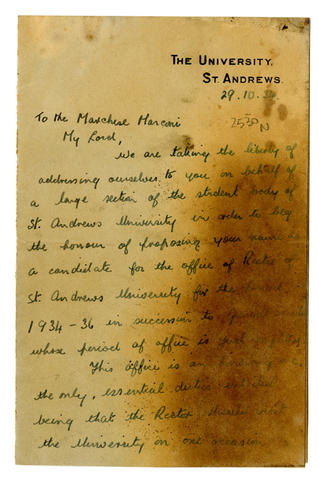 THE UNIVERSITY,
ST. ANDREWS.
29.10.
To the Marchese Marconi
My Lord,
we are taking the liberty of
addressing ourselves to you on behalf of
a large section of the student body of
St. Andrews University in order to beg
the honour of proposing your name as
a candidate for the office of Rector of
St. Andrews University for the
1934-36 in succession to
whose period of office is
This office is an
the only, essential duties
being that the Rector should visit
the University on one occasion